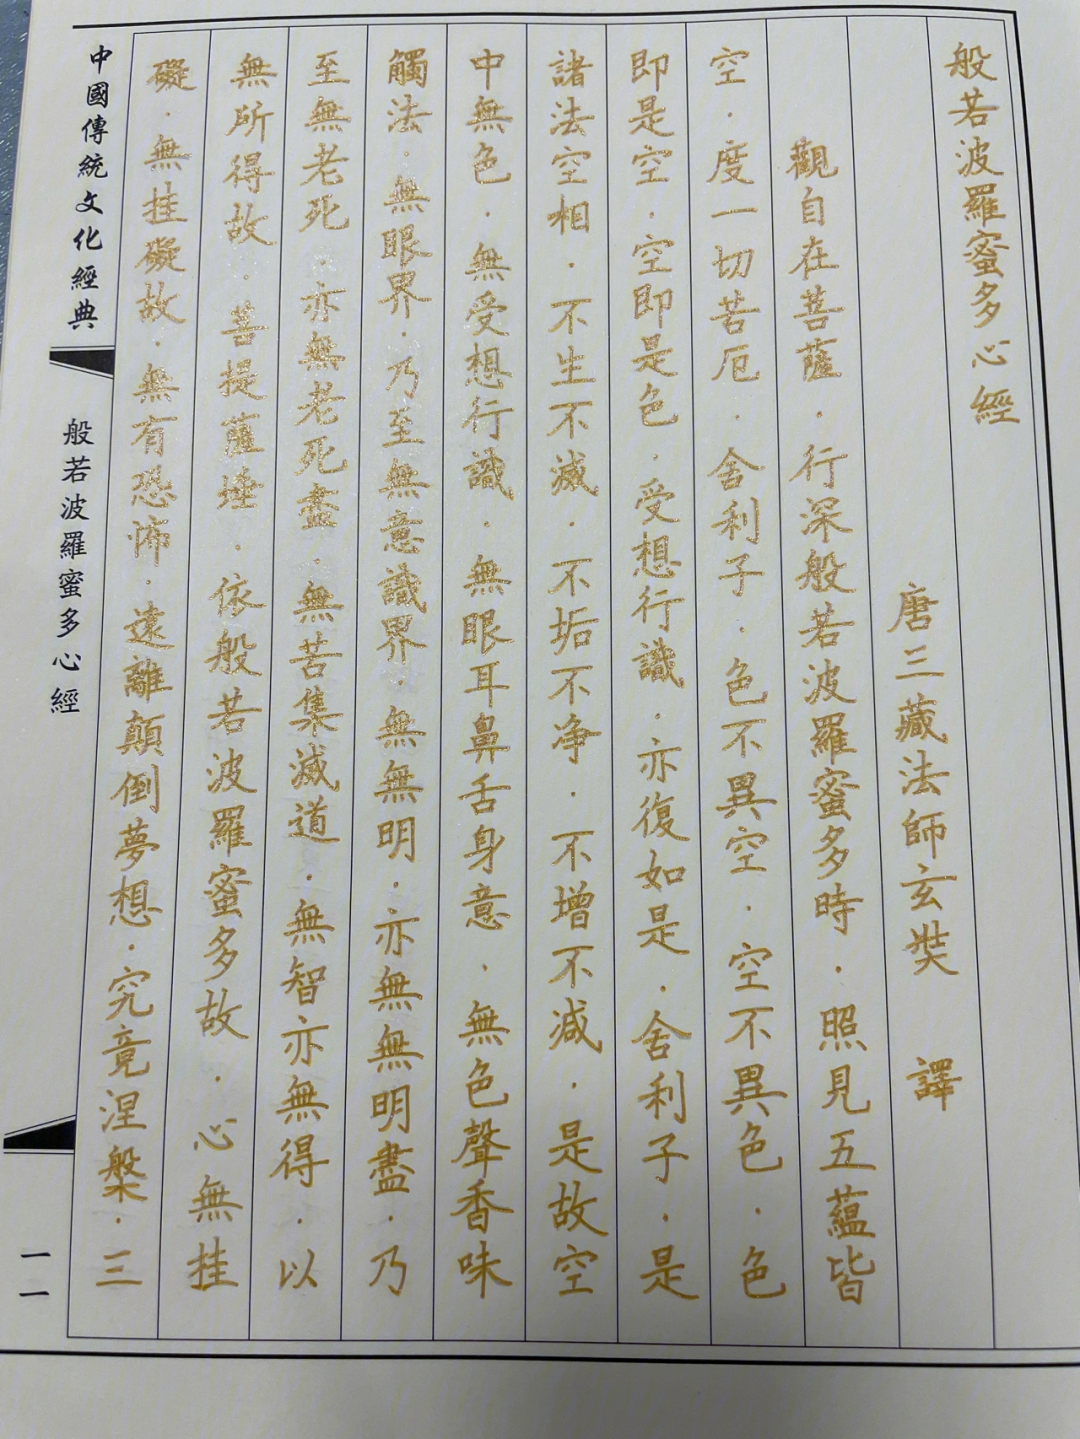 般若波羅蜜多心經
唐三藏法師玄奘 譯
觀自在菩薩．行深般若波羅蜜多時．照見五蘊皆
空．度一切苦厄．舍利子．色不異空．空不異色．色
即是空．空即是色．受想行識．亦復如是．舍利子．是
諸法空相．不生不滅．不垢不净．不增不減．是故空
中無色．無受想行識．無眼耳鼻舌身意．無色聲香味
觸法．無眼界．乃至無意識界．無無明．亦無無明盡．乃
至無老死．亦無老死盡．無苦集滅道．無智亦無得．以
無所得故．菩提薩埵．依般若波羅蜜多故．心無挂
礙．無挂礙故．無有恐怖．遠離顛倒夢想．究竟涅槃．三
中國傳統文化經典
般若波羅蜜多心經
一一